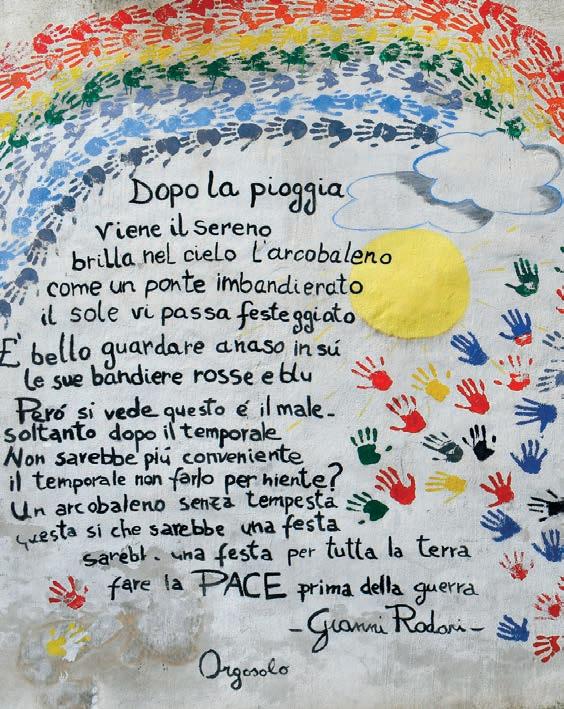 Dopo la pioggia
viene il sereno
brilla nel cielo l'arcobaleno
come un ponte imbandierato
il sole vi passa festeggiato
E' bello guardare a naso in sú
le sue bandiere rosse e blu
Peró si vede questo é il male-
soltanto dopo il temporale
Non sarebbe piú conveniente
il temporale non farlo per niente?
Un arcobaleno senza tempesta
questa si che sarebbe una festa
una festa per tutta la terra
fare la PACE prima della guerra
-Gianni Rodari-
Orgosolo